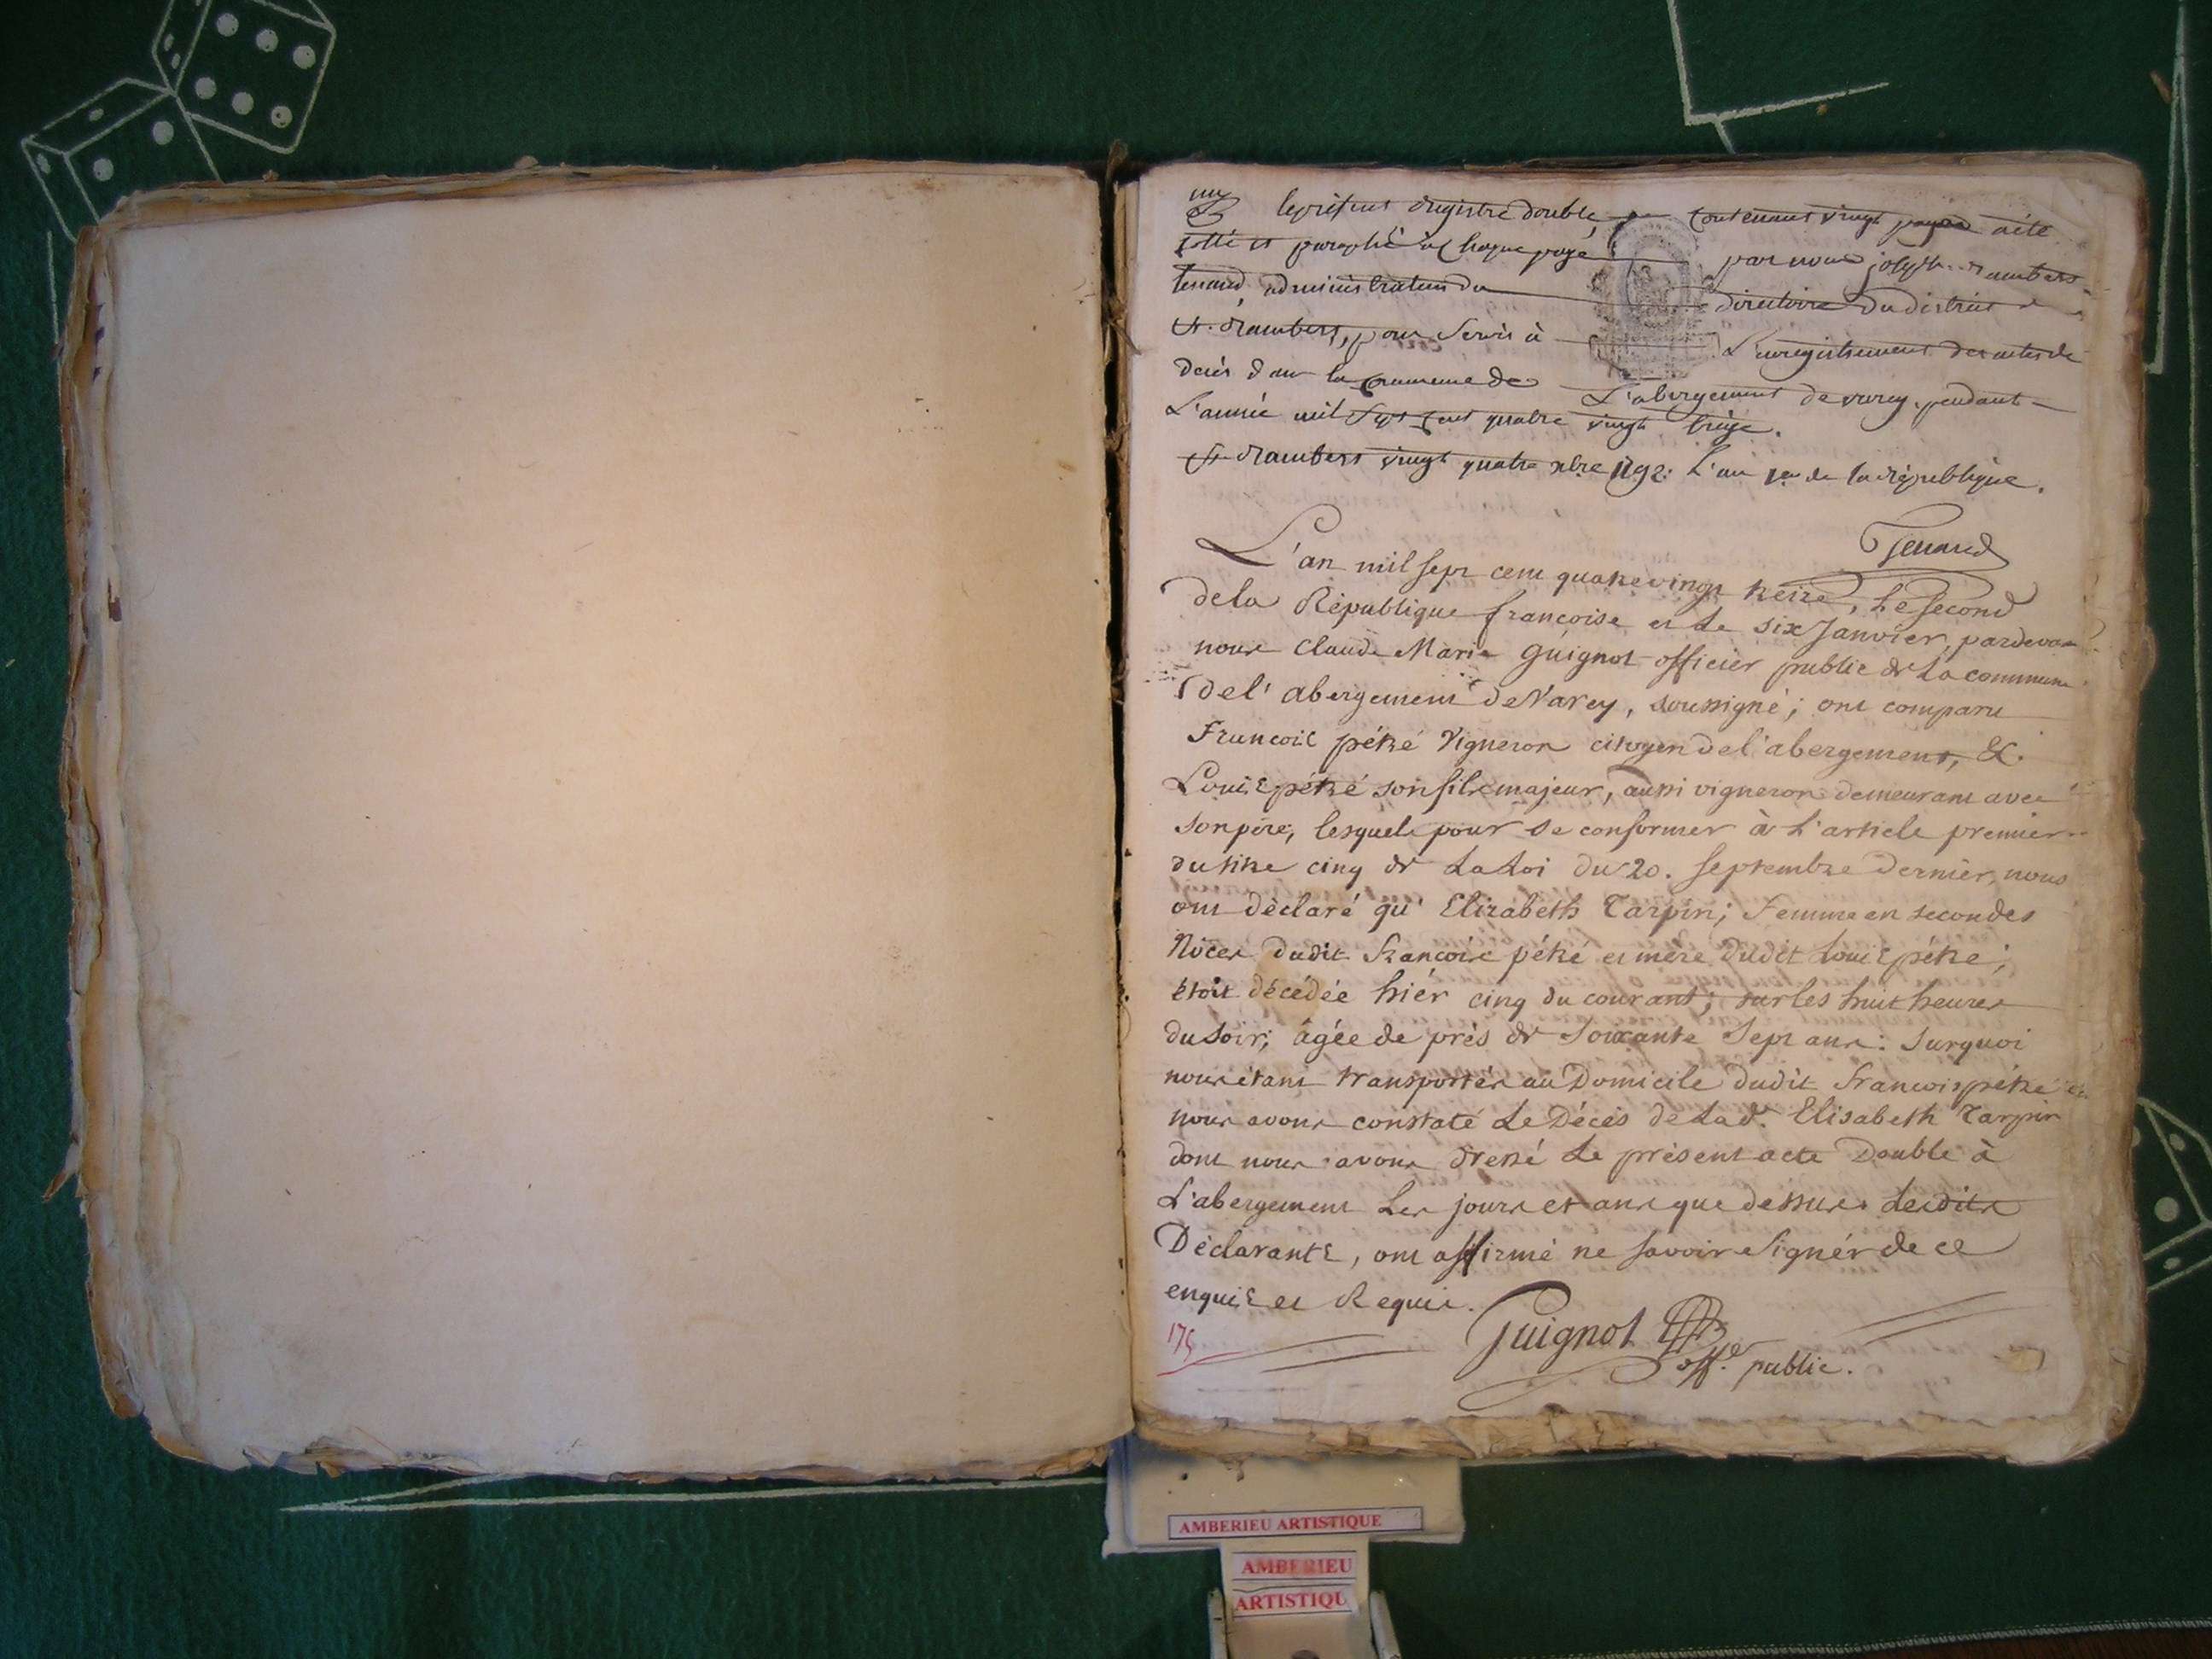 le présent registre double, contenant vingt pages a été
cotté et paraphé à chaque page par nous joseph rambert
tenand, administrateur du directoire du district de
St. Rambert, pour servir à L'enregistrement des actes de
décès dans la commune de L'abergement de varey, pendant
L'année mil sept cent quatre vingt treize.
St. Rambert vingt quatre xbre 1792. L'an 1er de la république.
Tenand
L'an mil sept cent quatrevingt treize, Le second
dela République françoise et Le six Janvier, pardevant
nous Claude Marie Guignot officier public de La commune
del'abergement de Varey, soussigné; ont comparu
François pétré Vigneron citoyen del'abergement, &
Louis pétré son fils majeur, aussi vigneron demeurant avec
son père, lesquels pour se conformer à L'article premier
du titre cinq de La Loi du 20. septembre dernier, nous
ont déclaré qu'Elizabeth Tarpin; Femme en secondes
Nôces dudit François pétré et mère dudit Louis pétré;
étoit décédée hiér cinq du courant; sur les huit heures
du soir; âgée de près de soixante sept ans: surquoi
nous étant transportés au Domicile dudit François pétré
nous avons constaté Le Décès de Lad. Elisabeth Tarpin
dont nous avons dressé Le présent acte Double à
L'abergement Les jours et ans que dessus Lesdits
Déclarants, ont affirmé ne savoir Signér de ce
enquis et Requis.
175
Guignot
off. public.
AMBERIEU ARTISTIQUE
AMBERIEU
ARTISTIQU